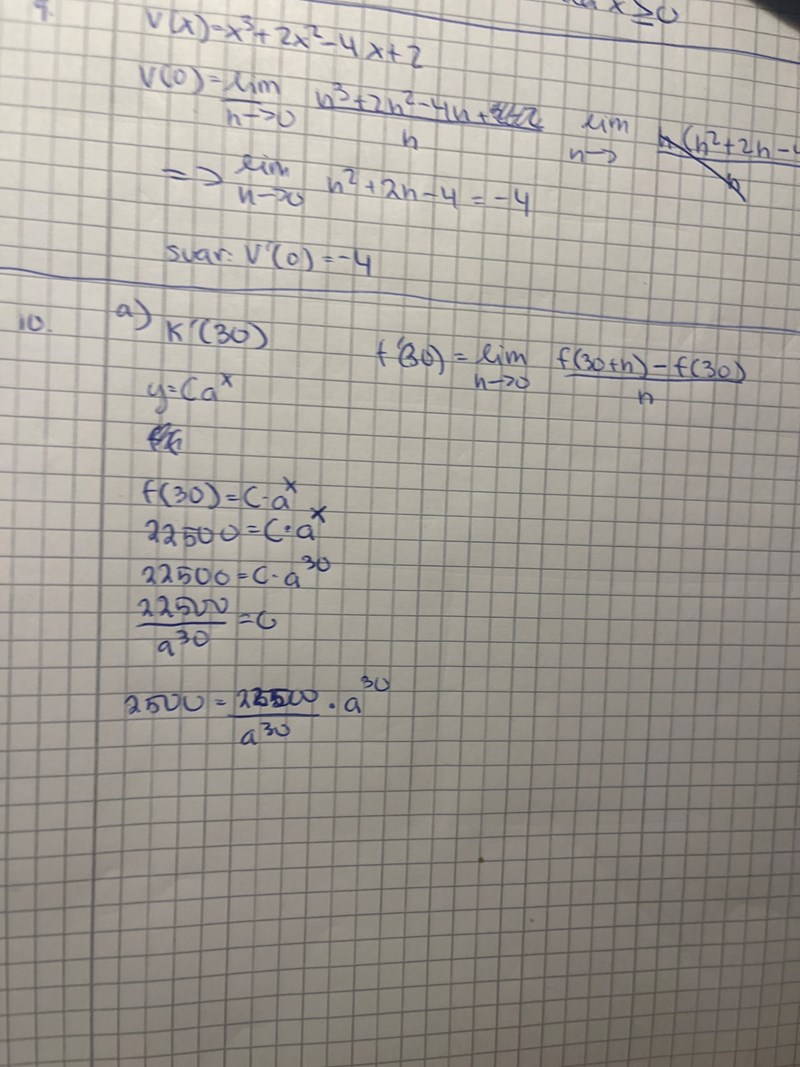 x ≥ 0
9.
V(x)=x³+2x²-4x+2
V(0)=lim h→0 h³+2h²-4h+2-2 / h lim h→ h(h²+2h-4 / h
=> lim h→0 h²+2h-4=-4
svar: V'(0)=-4
10. a) K'(30)
f'(30)=lim h→0 f(30+h)-f(30) / h
y=Ca^x
f(30)=C·a^x
22500=C·a^x
22500=C·a^30
22500 / a^30 =C
2500= 22500 / a^30 ·a^30